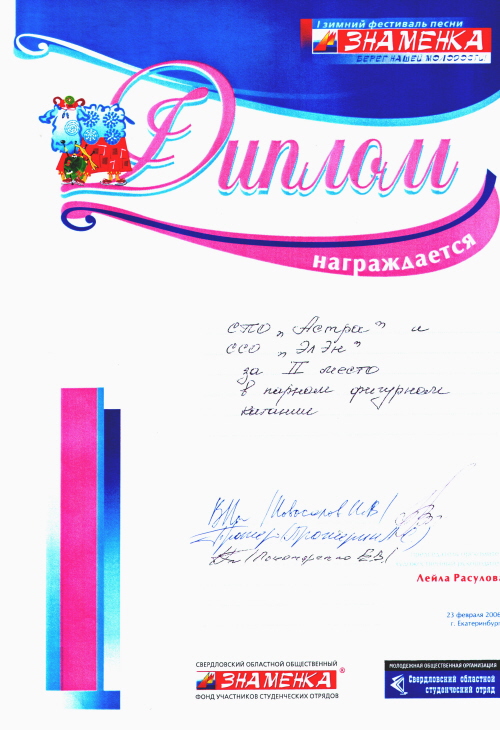 I зимний фестиваль песни
ЗНАМЕНКА
БЕРЕГ НАШЕЙ МОЛОДОСТИ!
Диплом
награждается
СПО „Астра” и
ССО „ЭлЭн”
за II место
в парном фигурном
катании
Новоселов И.В.
Пономаренко Е.В.
Лейла Расулова
23 февраля 2006
г. Екатеринбург
СВЕРДЛОВСКИЙ ОБЛАСТНОЙ ОБЩЕСТВЕННЫЙ
ЗНАМЕНКА ®
ФОНД УЧАСТНИКОВ СТУДЕНЧЕСКИХ ОТРЯДОВ
МОЛОДЕЖНАЯ ОБЩЕСТВЕННАЯ ОРГАНИЗАЦИЯ
Свердловский областной
студенческий отряд